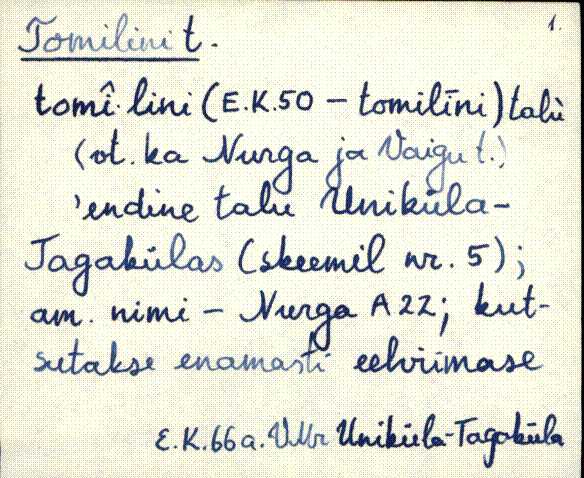 1.
Tomilini t.
tomî·lini (E.K.50 – tomilīni) talù
(vt. ka Nurga ja Vaigu t.)
'endine talu Uniküla-
Tagakülas (skeemil nr. 5);
am. nimi – Nurga A 22; kut-
sutakse enamasti eelvīmase
E.K.66a. VMr Uniküla-Tagaküla